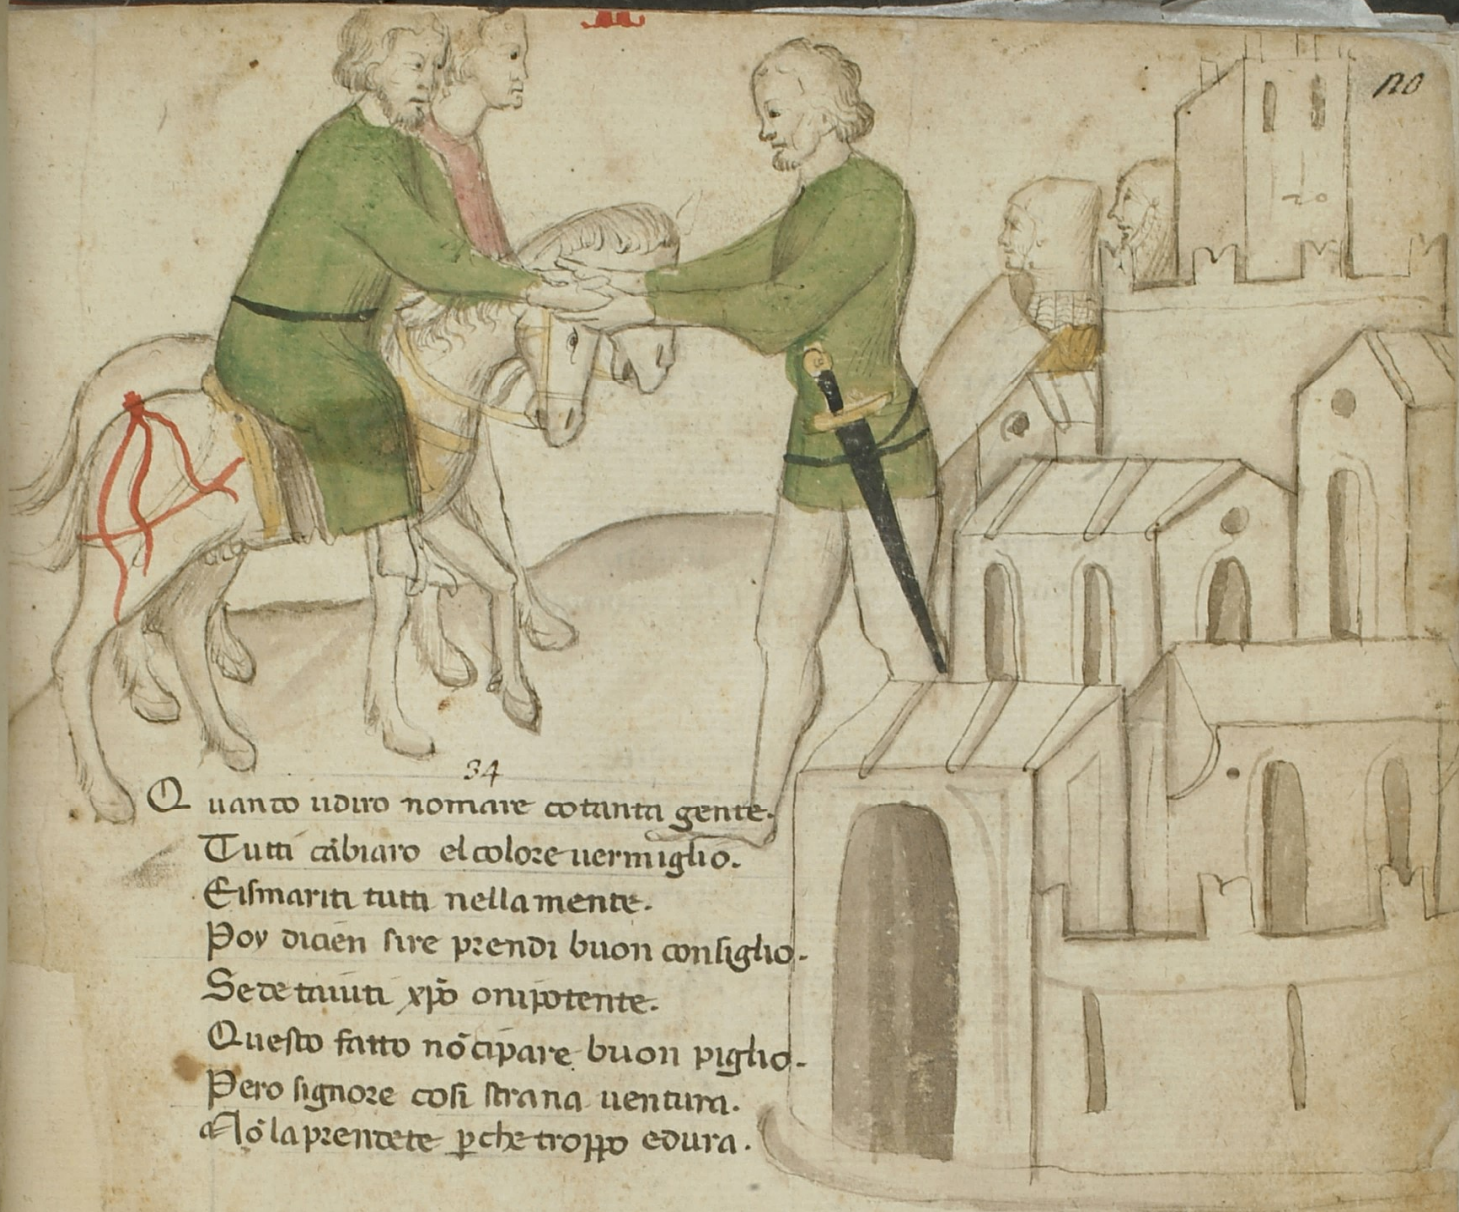 120
20
34
Quanto udiro nomare cotanta gente.
Tutti cābiaro el colore uermiglio.
E ismariti tutti nella mente.
Poy dicien sire prendi buon consiglio.
Se te aiuti xp̄o onipotente.
Questo fatto nō ci pare buon piglio.
Pero signore cosi strana uentura.
Nō la prendete p̱che troppo e dura.